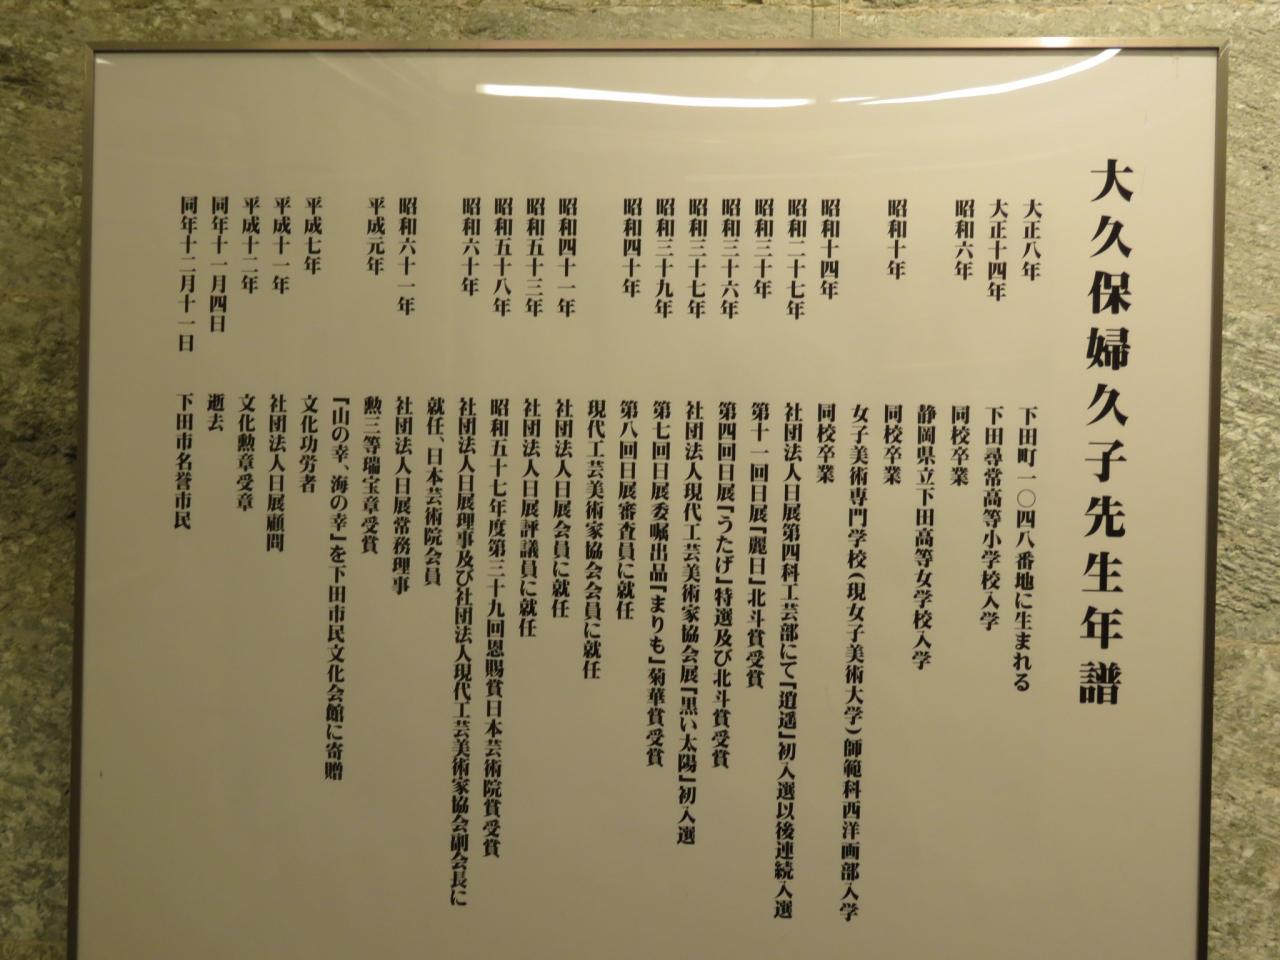 大久保婦久子先生年譜
大正八年 下田町一〇四八番地に生まれる
大正十四年 下田尋常高等小学校入学
昭和六年 同校卒業
静岡県立下田高等女学校入学
昭和十年 同校卒業
女子美術専門学校(現女子美術大学)師範科西洋画部入学
昭和十四年 同校卒業
昭和二十七年 社団法人日展第四科工芸部にて『逍遥』初入選以後連続入選
昭和三十年 第十一回日展『麗日』北斗賞受賞
昭和三十六年 第四回日展『うたげ』特選及び北斗賞受賞
昭和三十七年 社団法人現代工芸美術家協会展『黒い太陽』初入選
昭和三十九年 第七回日展委嘱出品『まりも』菊華賞受賞
昭和四十年 第八回日展審査員に就任
現代工芸美術家協会会員に就任
昭和四十一年 社団法人日展会員に就任
昭和五十三年 社団法人日展評議員に就任
昭和五十八年 昭和五十七年度第三十九回恩賜賞日本芸術院賞受賞
昭和六十年 社団法人日展理事及び社団法人現代工芸美術家協会副会長に
就任、日本芸術院会員
昭和六十一年 社団法人日展常務理事
平成元年 勲三等瑞宝章受賞
『山の幸、海の幸』を下田市民文化会館に寄贈
平成七年 文化功労者
平成十一年 社団法人日展顧問
平成十二年 文化勲章受章
同年十一月四日 逝去
同年十二月十一日 下田市名誉市民